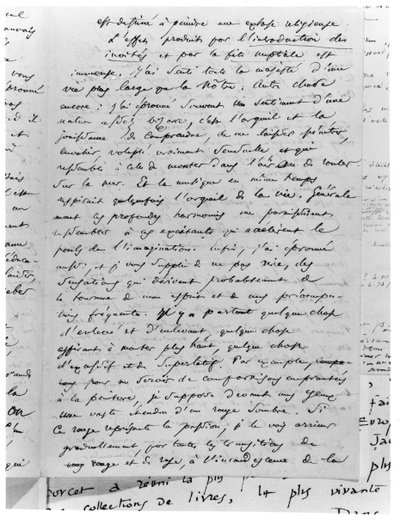 est destiné à peindre une extase religieuse.
L'effet produit par l'introduction des
invités et par la fête nuptiale est
immense. J'ai senti toute la majesté d'une
vie plus large que la nôtre. Autre chose
encore : j'ai éprouvé souvent un sentiment d'une
nature assez bizarre, c'est l'orgueil et la
jouissance de comprendre, de me laisser pénétrer,
envahir, volupté vraiment sensuelle et qui
ressemble à celle de monter dans l'air ou de rouler
sur la mer. Et la musique en même temps
respirait quelquefois l'orgueil de la vie. Générale
ment ces profondes harmonies me paraissaient
ressembler à ces excitants qui accélèrent le
pouls de l'imagination. Enfin, j'ai éprouvé
aussi, et je vous supplie de ne pas rire, des
sensations qui dérivent probablement de
la tournure de mon esprit et de mes préoccupa-
tions fréquentes. Il y a partout quelque chose
d'enlevé et d'enlevant, quelque chose
aspirant à monter plus haut, quelque chose
d'excessif et de superlatif. Par exemple,
pour me servir de comparaisons empruntées
à la peinture, je suppose devant mes yeux
une vaste étendue d'un rouge sombre. Si
ce rouge représente la passion, je le vois arriver
graduellement, par toutes les transitions de
rouge et de rose, à l'incandescence de la
a réuni la plus
collections de livres, la plus vivante